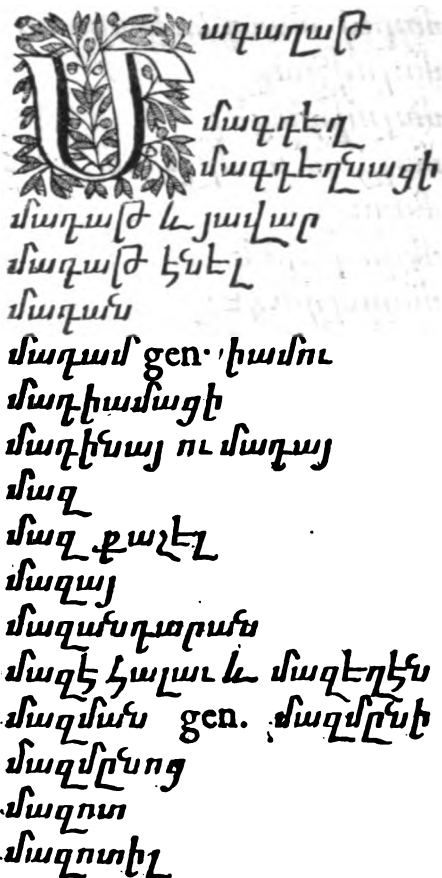 Մագաղաթ
մագդեղ
մագդեղնացի
մադաթ և յավար
մադաթ էնել
մադան
մադամ gen. իամու
մադիամացի
մադինայ ու մադայ
մազ
մազ քաշել
մազայ
մազանդարան
մազէ հալաւ և մազեղէն
մազման gen. մազմընի
մազմընոց
մազոտ
մազոտիլ